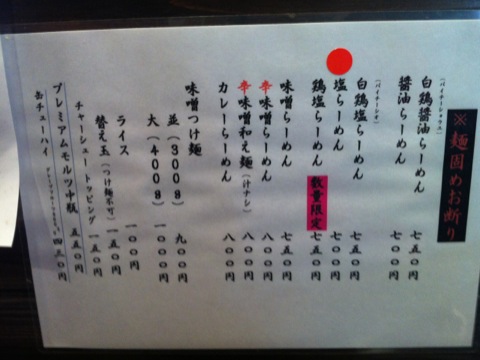 ※麺固めお断り
(パイチーショウユ)
白鶏醤油らーめん 七五〇円
醤油らーめん 七〇〇円
(パイチーシオ)
白鶏塩らーめん 七五〇円
塩らーめん 七〇〇円
鶏塩らーめん 数量限定 七五〇円
味噌らーめん 七五〇円
辛味噌らーめん 八〇〇円
辛味噌和え麺(汁ナシ) 八〇〇円
カレーらーめん 八〇〇円
味噌つけ麺
並(300g) 九〇〇円
大(400g) 一〇〇〇円
ライス 一〇〇円
替え玉(つけ麺不可) 一五〇円
チャーシュートッピング 一五〇円
プレミアムモルツ中瓶 五五〇円
缶チューハイ 四三〇円